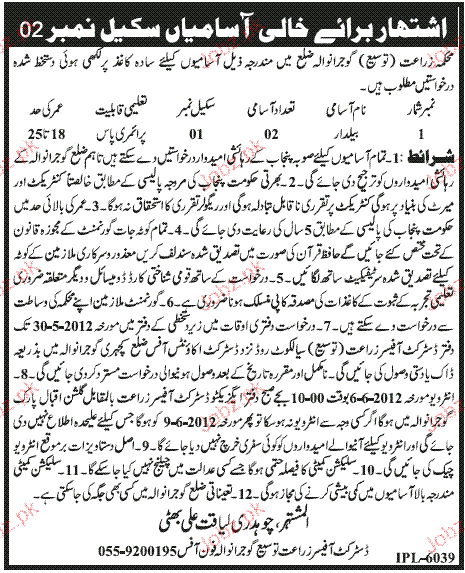 اشتہار برائے خالی آسامیاں سکیل نمبر 02
محکمہ زراعت (توسیع) گوجرانوالہ ضلع میں مندرجہ ذیل آسامیوں کیلئے سادہ کاغذ پر لکھی ہوئی دستخط شدہ
درخواستیں مطلوب ہیں۔
نمبر شمار نام آسامی تعداد آسامی سکیل نمبر تعلیمی قابلیت عمر کی حد
1 بیلدار 02 01 پرائمری پاس 18 تا 25
شرائط: 1۔ تمام آسامیوں کیلئے صوبہ پنجاب کے رہائشی امیدوار درخواستیں دے سکتے ہیں تاہم ضلع گوجرانوالہ کے
رہائشی امیدواروں کو ترجیح دی جائے گی۔ 2۔ بھرتی حکومت پنجاب کی مروجہ پالیسی کے مطابق خالصتاً کنٹریکٹ اور
میرٹ کی بنیاد پر ہو گی کنٹریکٹ پر تقرری ناقابل تبادلہ ہو گی اور ریگولر تقرری کا استحقاق نہ ہو گا۔ 3۔ عمر کی بالائی حد میں
حکومت پنجاب کی پالیسی کے مطابق 5 سال کی رعایت دی جائے گی۔ 4۔ تمام کوٹہ جات گورنمنٹ کے مجوزہ قانون
کے تحت مختص کئے جائیں گے حافظ قرآن کی صورت میں تصدیق شدہ سند لف کریں معذور و سرکاری ملازمین کے کوٹہ
کیلئے تصدیق شدہ سرٹیفکیٹ لگائیں۔ 5۔ درخواست کے ساتھ قومی شناختی کارڈ ڈومیسائل و دیگر متعلقہ ضروری
تعلیمی تجربہ کے ثبوت کے کاغذات کی مصدقہ کاپی منسلک ہونا ضروری ہے۔ 6۔ گورنمنٹ ملازمین اپنے محکمہ کی وساطت
سے درخواست دے سکتے ہیں۔ 7۔ درخواست دفتری اوقات میں زیر دستخطی کے دفتر میں مورخہ 30-5-2012 تک
دفتر ڈسٹرکٹ آفیسر زراعت (توسیع) سیالکوٹ روڈ نزد ڈسٹرکٹ اکاؤنٹس آفس ضلع کچہری گوجرانوالہ میں بذریعہ
ڈاک یا دستی وصول کی جائیں گی۔ نامکمل اور مقررہ تاریخ کے بعد وصول ہونیوالی درخواست مسترد کر دی جائیں گی۔ 8۔
انٹرویو مورخہ 6-6-2012 بوقت 10-00 بجے صبح دفتر ایگزیکٹو ڈسٹرکٹ آفیسر زراعت بالمقابل گلشن اقبال پارک
گوجرانوالہ میں ہو گا اگر کسی وجہ سے انٹرویو نہ ہو سکا تو پھر مورخہ 9-6-2012 کو ہو گا جس کیلئے علیحدہ اطلاع نہیں دی
جائے گی اور انٹرویو کیلئے آنیوالے امیدواروں کو کوئی سفری خرچ نہیں دیا جائے گا۔ 9۔ اصل دستاویزات بر موقع انٹرویو
چیک کی جائیں گی۔ 10۔ سلیکشن کمیٹی کا فیصلہ حتمی ہو گا جسے کسی عدالت میں چیلنج نہیں کیا جا سکے گا۔ 11۔ سلیکشن کمیٹی
مندرجہ بالا آسامیوں میں کمی بیشی کرنے کی مجاز ہو گی۔ 12۔ تعیناتی ضلع گوجرانوالہ میں کسی بھی جگہ کی جا سکتی ہے۔
المشتہر، چوہدری لیاقت علی بھٹی
ڈسٹرکٹ آفیسر زراعت توسیع گوجرانوالہ فون آفس 055-9200195
IPL-6039